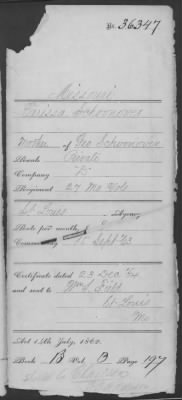 No. 36347
Missouri
Larissa Schoonover
Mother of Geo Schoonover
Rank Private
Company
Regiment 27 Mo Vols
St Louis Agency
Rate per month,
Commencing Sept /63
Certificate dated 23 Dec /64
and sent to Wm S.
St Louis
Mo
Act 14th July, 1862.
Book B Vol. B Page 197